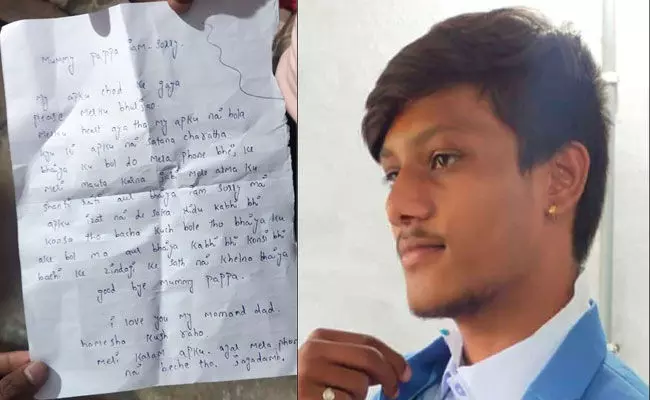 Mummy pappa iam-sorry.
My apku chod ke gaya
please Melku bhuljao
Melku heart gya tho my apku na bola
kyu ki apku na satana charatha
bhaiya ku bol do mela phone bhej ke
Meli mauta karna jabi meli atma ku
shanti aur bhaiya iam sorry ma
apku na de saka didu kabhi bhi
konsa tho bacha kuch bole tho bhaiya ku
ake bol ma aur bhaiya kabhi bhi konsi bhi
bachi ke zindagi ke sath na khelna bhaiya
good bye Mummy pappa.
i love you my momand dad.
hamesha kush raho
Meli kasam apku. agar mela phone
na beche tho.